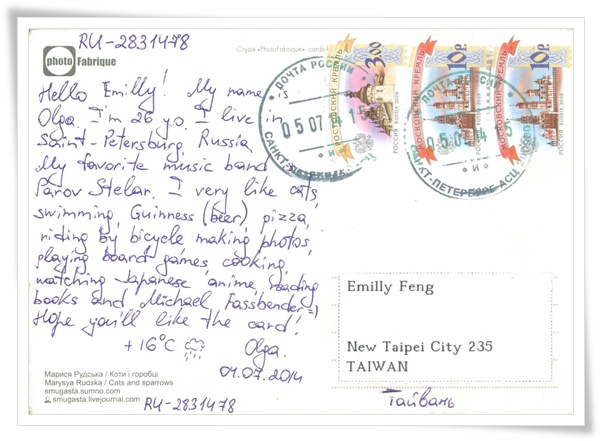 RU-2831478
photo Fabrique
Студия «PhotoFabrique» cards-
Hello Emilly! My name is
Olga. I'm 26 y.o. I live in
Saint-Petersburg, Russia.
My favorite music band
Parov Stelar. I very like cats,
swimming, Guinness (beer), pizza,
riding by bicycle, making photos,
playing board games, cooking,
watching Japanese anime, reading
books and Michael Fassbender =)
Hope you'll like the card!
+16°C
Olga.
01.07.2014
Марися Рудська / Коти і горобці
Marysya Rudska / Cats and sparrows
smugasta.sumno.com
smugasta.livejournal.com
RU-2831478
РОСТОВСКИЙ КРЕМЛЬ
3.00
РОССИЯ ROSSIJA 2009
МОСКОВСКИЙ КРЕМЛЬ
10Р.
РОССИЯ
МОСКОВСКИЙ КРЕМЛЬ
10Р.
РОССИЯ ROSSIJA 2009
ПОЧТА РОССИИ
05 07 14 15
САНКТ-ПЕТЕРБУРГ
ПОЧТА РОССИИ
05 07 14 15
САНКТ-ПЕТЕРБУРГ АСЦ
Emilly Feng
New Taipei City 235
TAIWAN
Тайвань